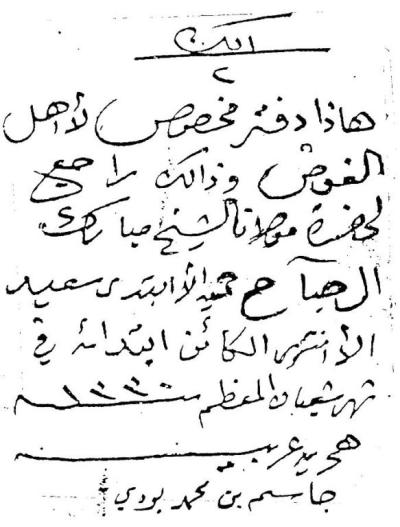 ٢
هاذا دفتر مخصوص لأهل
الغوص وذالك راجع
لحضرة مولانا الشيخ مبارك
الصباح حميد الأبتدى سعيد
الأنتهى الكائن ابتدائه في
شهر شعبان المعظم سنة ١٣٣٠
هجريه عربيه
جاسم بن محمد بودي